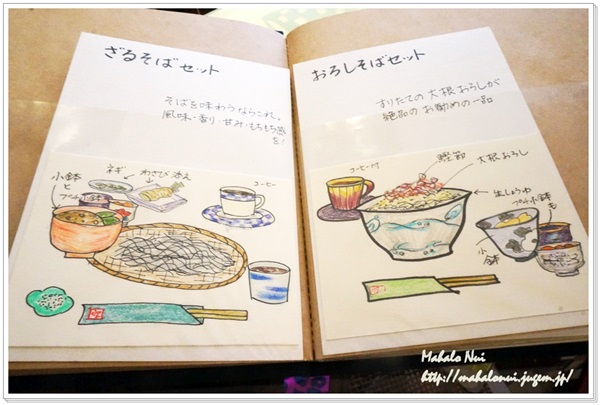 ざるそばセット
そばを味わうならこれ。
風味・香り・甘み・もちもち感
を!
小鉢
と
ネギ
わさび 添え
コーヒー
おろしそばセット
すりたての 大根おろしが
絶品の お勧めの一品
コーヒー付
鰹節
大根おろし
生しょうゆ
小鉢
Mahalo Nui
http://mahalonui.jugem.jp/